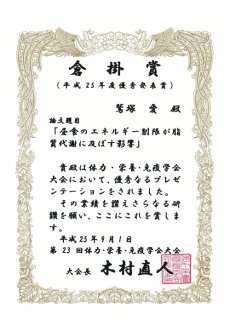 倉掛賞
(平成25年度優秀発表賞)
鷲塚 愛 殿
論文題目
「昼食のエネルギー制限が脂
質代謝に及ぼす影響」
貴殿は体力・栄養・免疫学会
大会において、優秀なるプレゼ
ンテーションをされました。
その業績を讃えさらなる研
鑽を願い、ここにこれを賞しま
す。
平成25年9月1日
第23回体力・栄養・免疫学会大会
大会長 木村直人